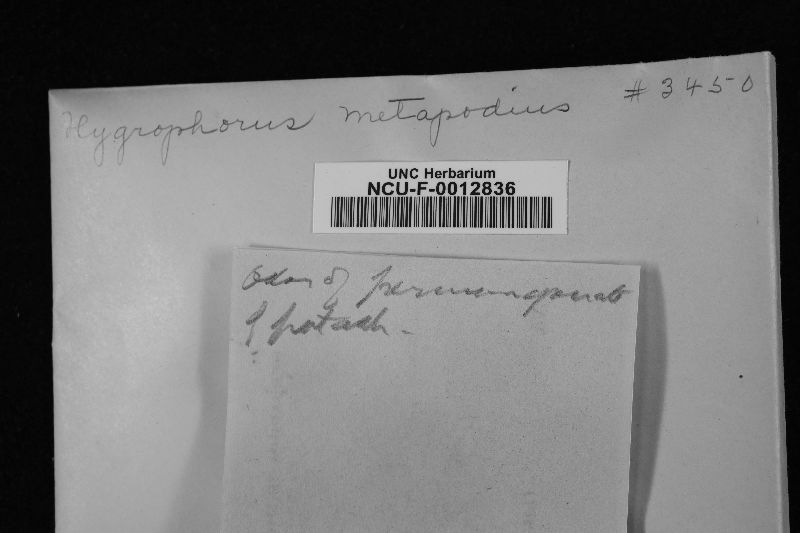 Hygrophorus metapodius # 3450
UNC Herbarium
NCU-F-0012836
Odor of permanganate
of potash.